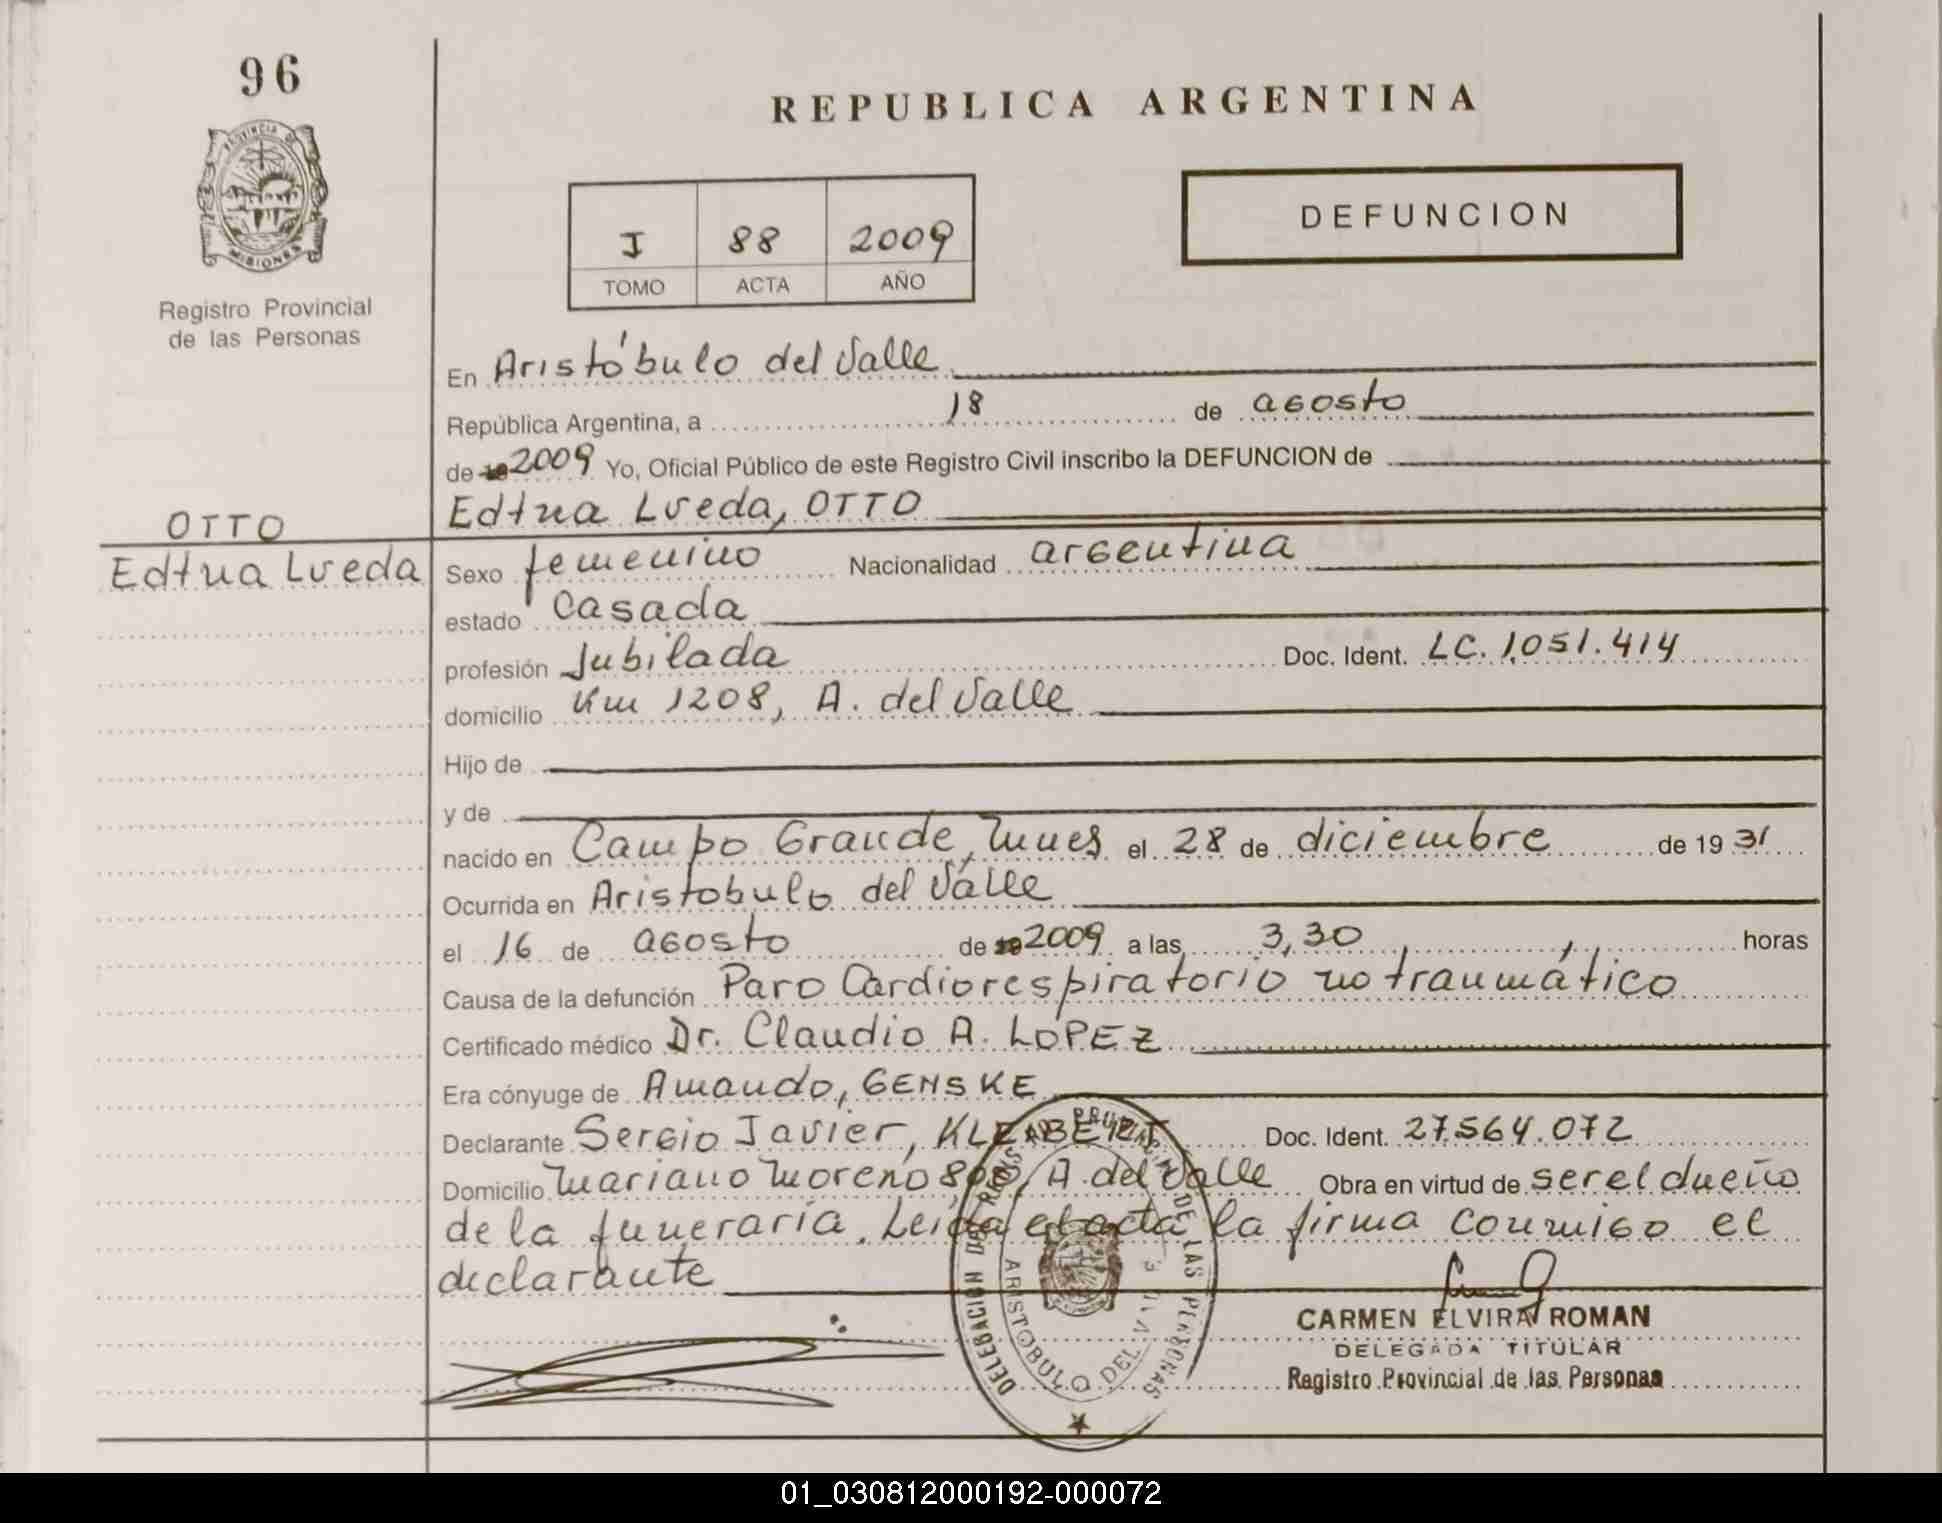 96
REPUBLICA ARGENTINA
PROVINCIA DE
MISIONES
DEFUNCION
I 88 2009
TOMO ACTA AÑO
Registro Provincial
de las Personas
En Aristóbulo del Valle
República Argentina, a 18 de agosto
de 2009 Yo, Oficial Público de este Registro Civil inscribo la DEFUNCION de
Edtna Lveda, OTTO
OTTO
Edtna Lveda
Sexo femenino Nacionalidad argentina
estado Casada
profesión Jubilada Doc. Ident. LC. 1.051.414
domicilio Km 1208, A. del Valle
Hijo de
y de
nacido en Campo Grande, Mnes el 28 de diciembre de 1931
Ocurrida en Aristobulo del Valle
el 16 de agosto de 2009 a las 3,30 horas
Causa de la defunción Paro Cardiorespiratorio no traumático
Certificado médico Dr. Claudio A. LOPEZ
Era cónyuge de Amando, GENSKE
Declarante Sergio Javier, Doc. Ident. 27.564.072
Domicilio Mariano Moreno A. del Valle Obra en virtud de ser el dueño
de la funeraria. Leída el acta la firma conmigo el
declarante
DELEGACION DE LAS PERSONAS
ARISTOBULO DEL VALLE
CARMEN ELVIRA ROMAN
DELEGADA TITULAR
Registro Provincial de las Personas
01_030812000192-000072